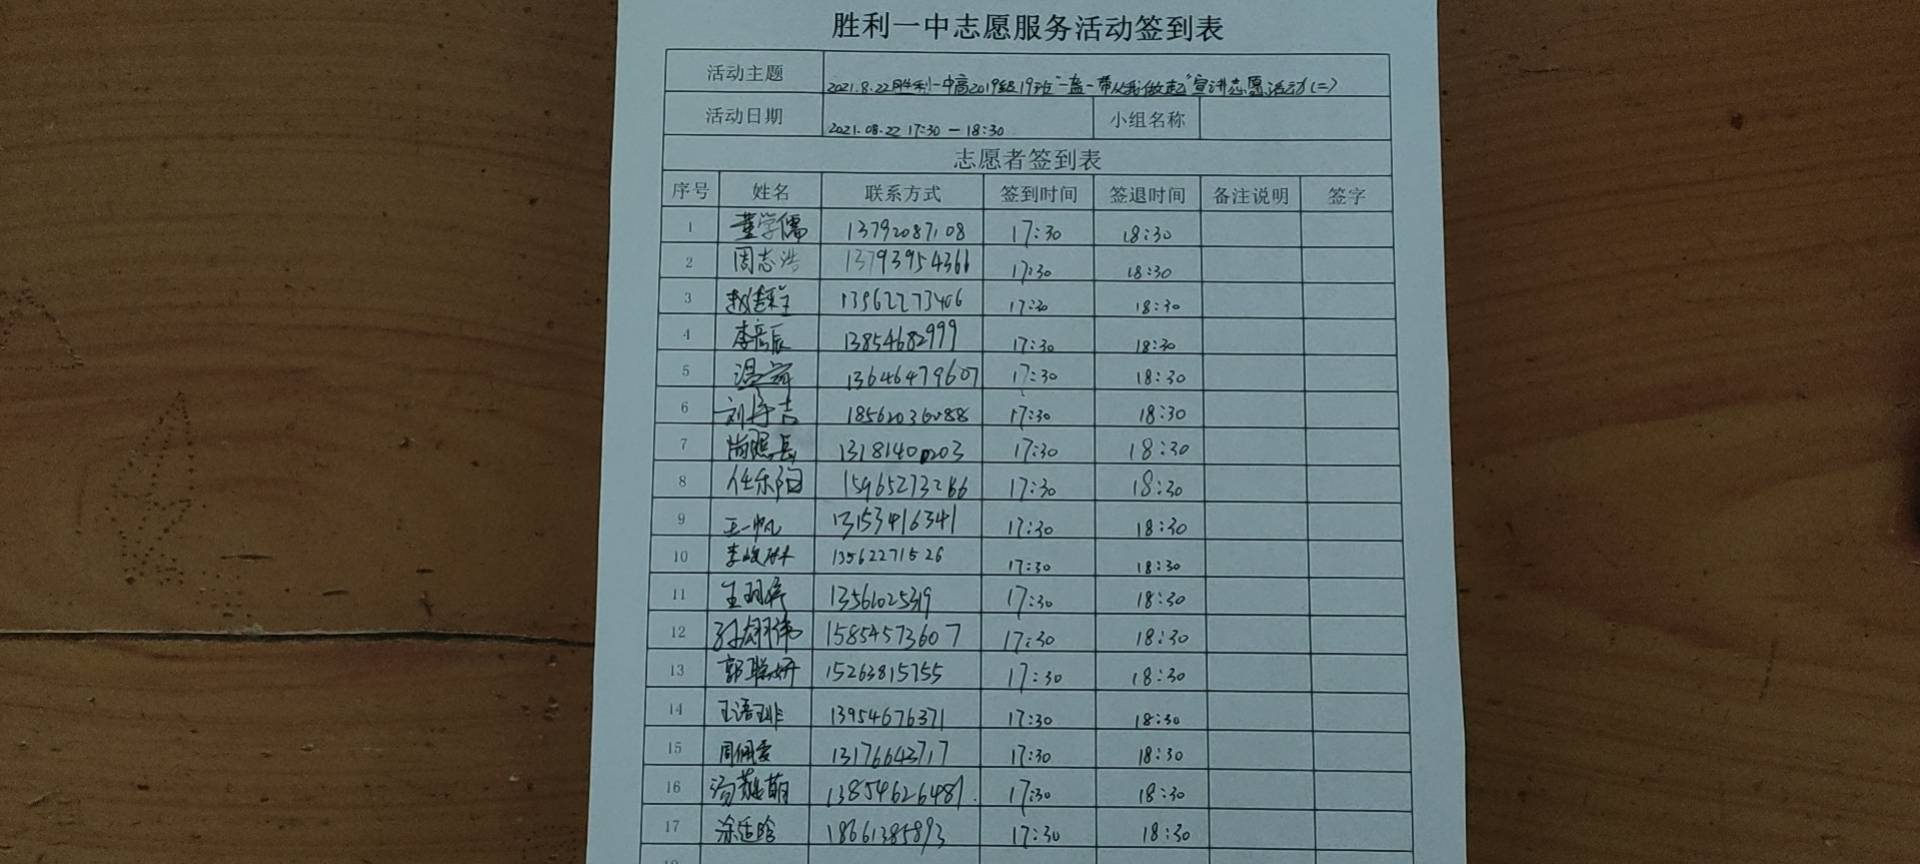 胜利一中志愿服务活动签到表
活动主题 2021.8.22胜利一中高2019级19班"一盔一带从我做起"宣讲志愿活动(二)
活动日期 2021.08.22 17:30 — 18:30 小组名称
志愿者签到表
序号 姓名 联系方式 签到时间 签退时间 备注说明 签字
1 董学儒 13792087108 17:30 18:30
2 周志浩 13793954366 17:30 18:30
3 13962273406 17:30 18:30
4 李彦辰 13854682999 17:30 18:30
5 13646479607 17:30 18:30
6 17:30 18:30
7 17:30 18:30
8 任乐陶 15965273266 17:30 18:30
9 王一帆 13153416341 17:30 18:30
10 13562271526 17:30 18:30
11 17:30 18:30
12 孙翊伟 15854573607 17:30 18:30
13 郭聪妍 15263815755 17:30 18:30
14 王语琲 13954676371 17:30 18:30
15 周佩雯 13176643717 17:30 18:30
16 13854626481 17:30 18:30
17 涂适晗 18661385893 17:30 18:30